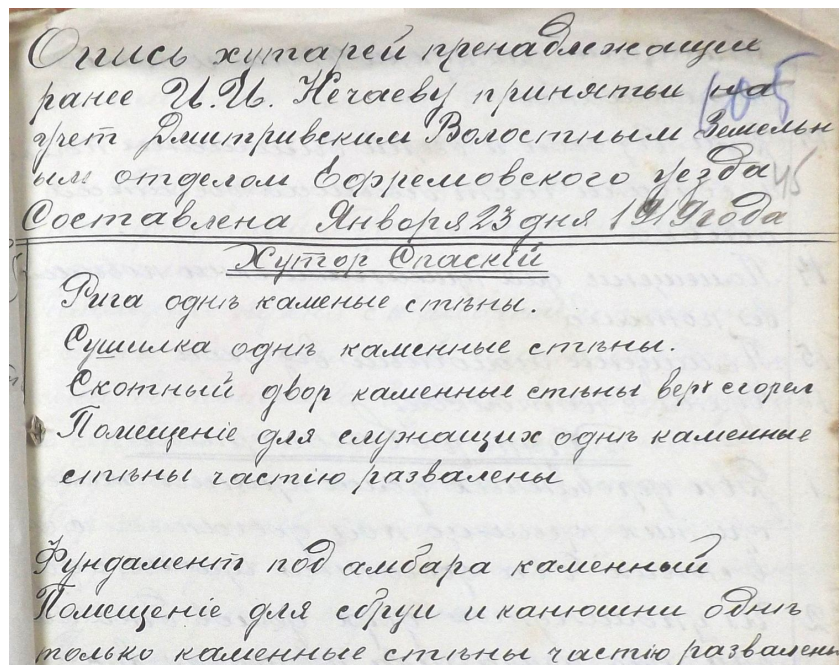 Опись хутарей пренадлежащии
ранее И.И. Нечаеву принятыи на
105
учет Дмитривским Волостным Земельн
ым отделом Ефремовского уезда
45
Составлена Января 23 дня 1919 года
Хутор Спаский
Рига однѣ каменые стѣны.
Сушилка однѣ каменные стѣны.
Скотный двор каменные стѣны верх сгорел
Помещенiе для служащих однѣ каменные
стѣны частiю развалены
Фундамент под амбара каменный
Помещенiе для сбруи и канюшни однѣ
только каменные стѣны частiю развалены